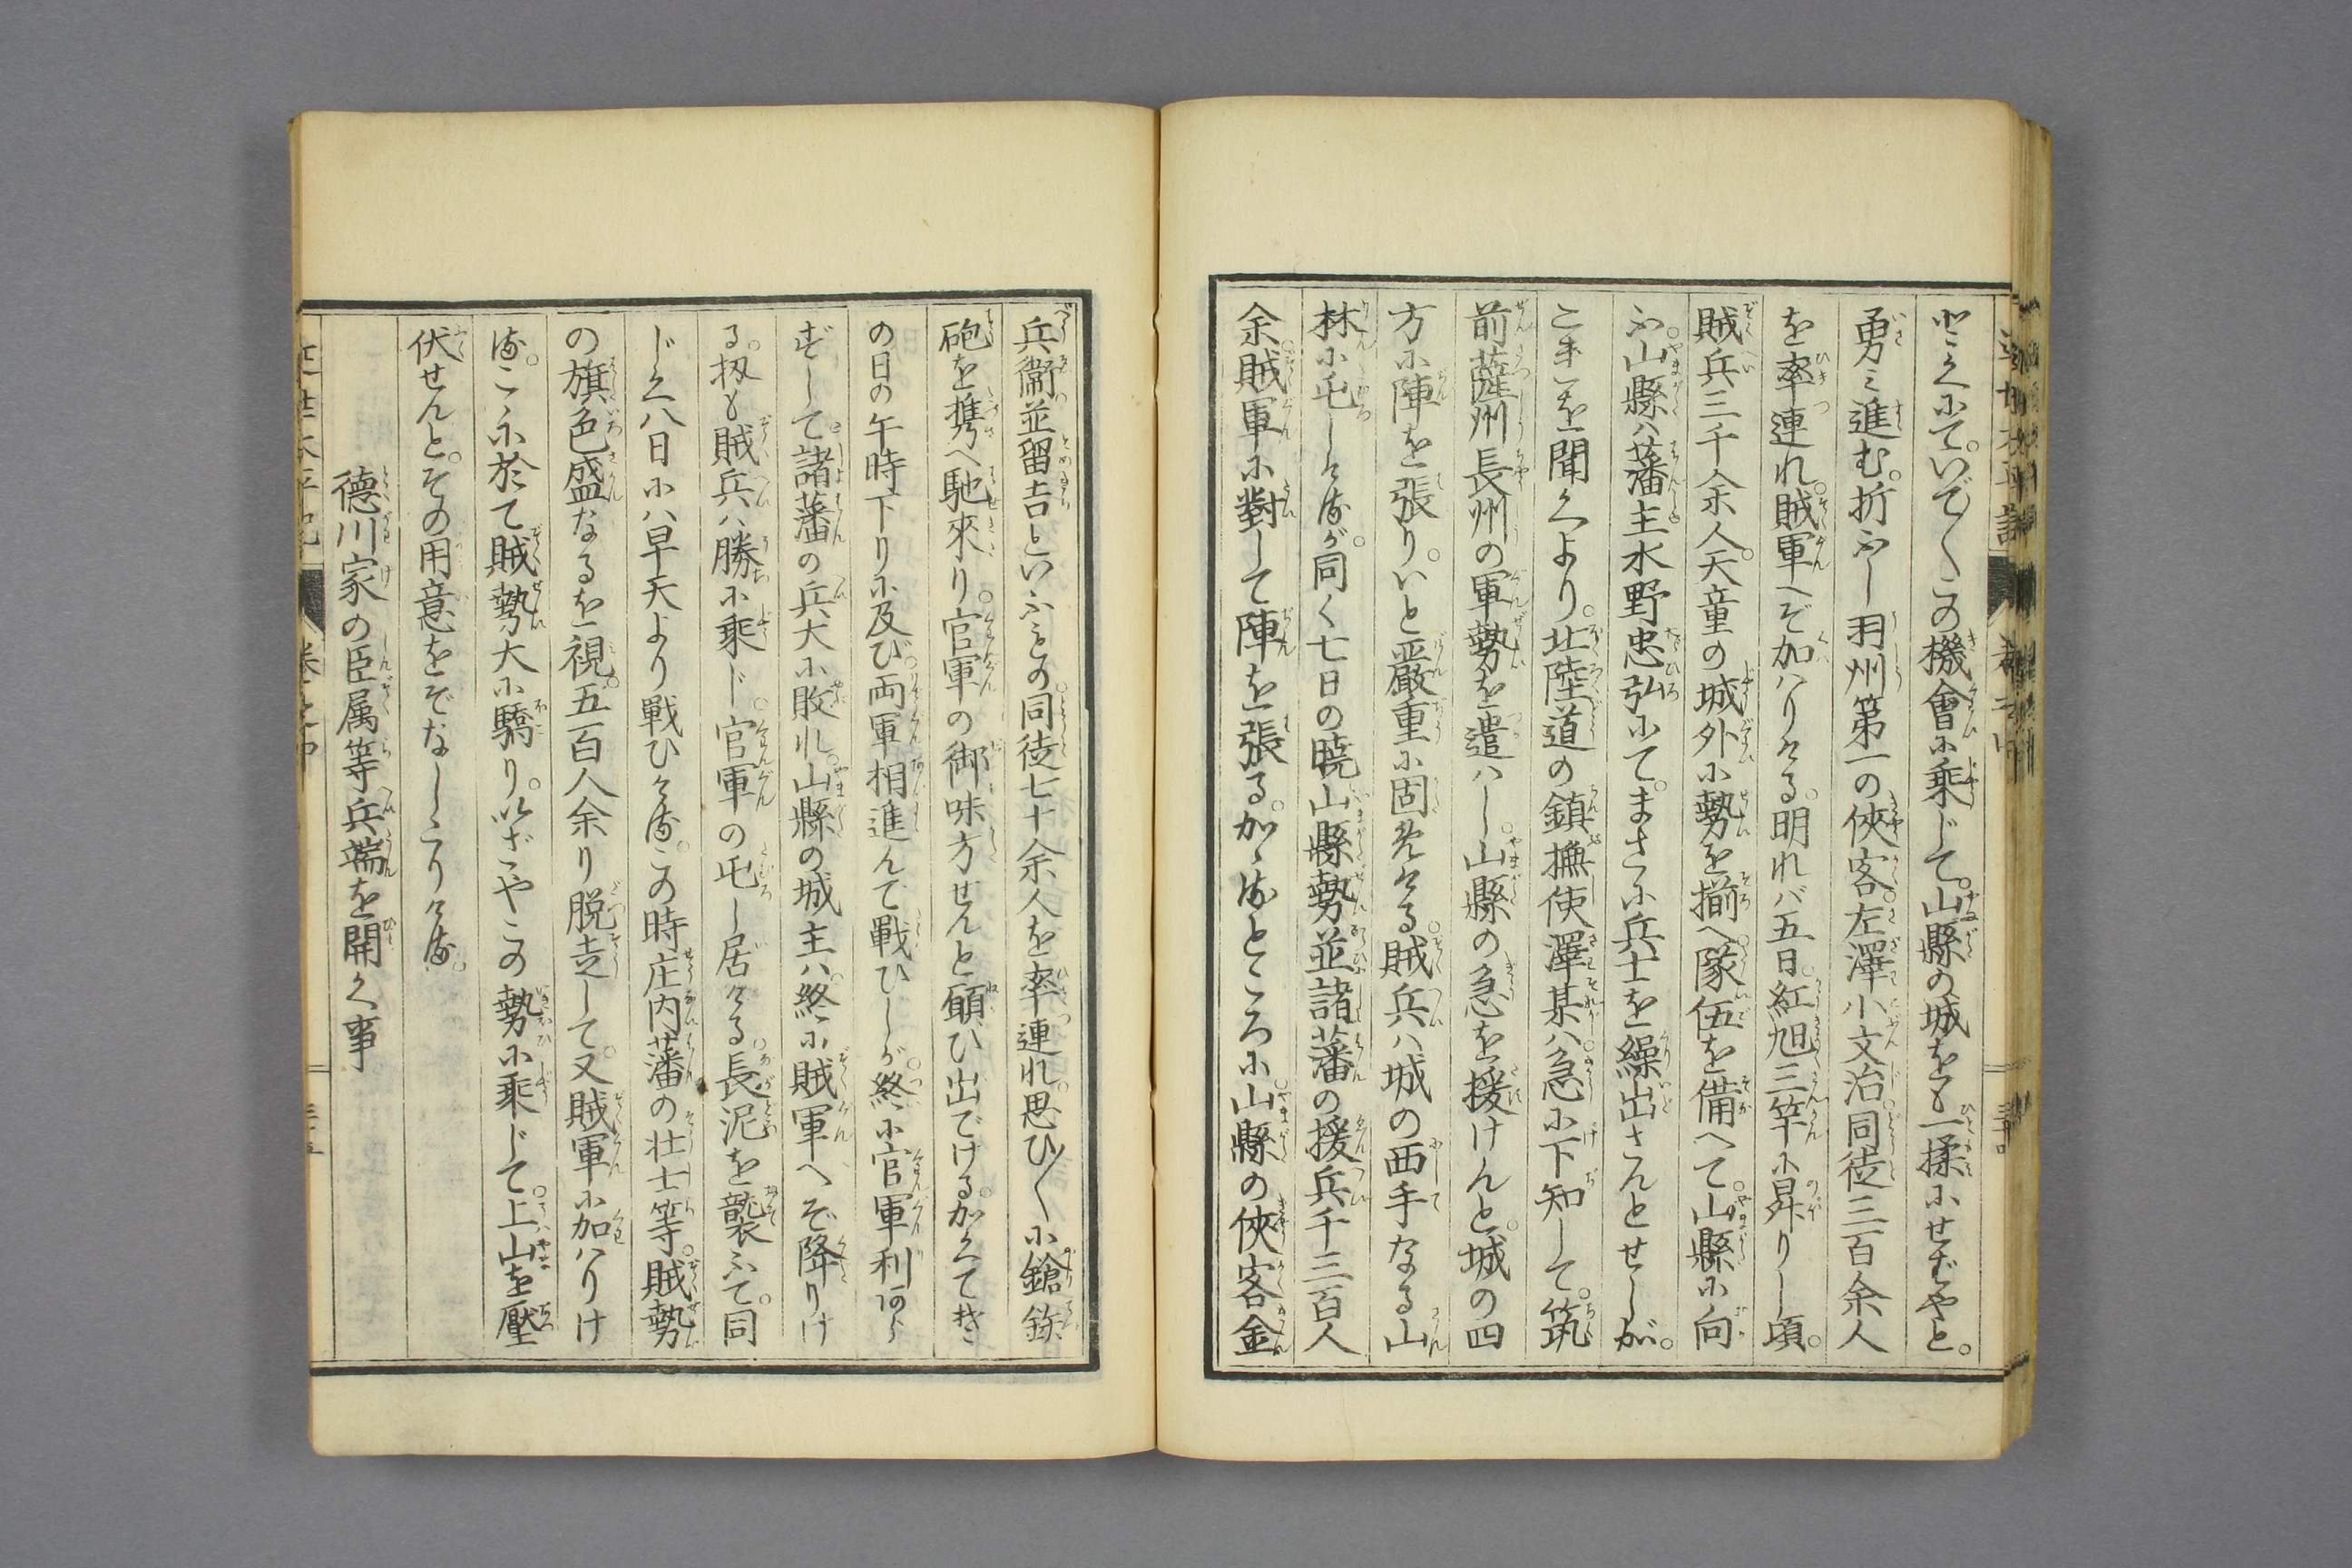 とくにて。いで〱この機會に乗じて。山縣の城をも一揉にせばやと。
勇み進む。折ふし羽州第一の俠客。左澤小文治。同徒三百余人
を率連れ。賊軍へぞ加はりける。明れバ五日。紅旭三竿に昇りし頃。
賊兵三千余人。天童の城外に勢を揃へ。隊伍を備へて。山縣に向
ふ。山縣ハ藩主水野忠弘にて。まさに兵士を繰出さんとせしが。
こ事を聞くより。北陸道の鎮撫使澤某ハ。急に下知して。筑
前薩州長州の軍勢を遣はし。山縣の急を援けんと。城の四
方に陣を張り。いと嚴重に固めける。賊兵ハ城の西手なる山
林に屯しけるが。同く七日の暁。山縣勢並諸藩の援兵千三百人
余。賊軍に對して陣を張る。かゝるところに。山縣の俠客金
兵衞並留吉といふもの。同徒七十余人を率連れ。思ひ〱に鎗鉄
砲を携へ馳來り。官軍の御味方せんと願ひ出でける。かくてき
の日の午時下りに及び。両軍相進んて戰ひしが。終に官軍利あら
ずして。諸藩の兵大に敗れ。山縣の城主ハ。終に賊軍へぞ降りけ
る。扨も賊兵ハ勝に乘じ。官軍の屯し居ける。長泥を襲ふて。同
じく八日にハ早天より戰ひける。この時庄内藩の壮士等。賊勢
の旗色盛なるを視。五百人余り脱走して。又賊軍に加はりけ
る。こゝに於て賊勢大に驕り。いざやこの勢に乘じて。上山を壓
伏せんと。その用意をぞなしたりける。
德川家の臣属等兵端を開く事